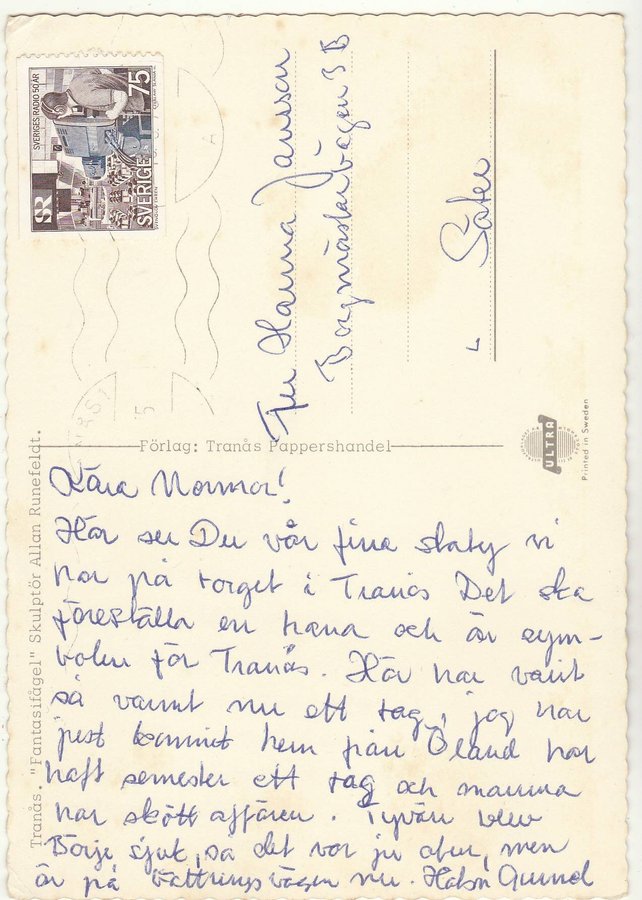 SVERIGES RADIO 50 ÅR
75
SR
SVERIGE
Fru Hanna Jansson
Borgmästarvägen 3 B
Säter
ULTRA
Printed in Sweden
Förlag: Tranås Pappershandel
Tranås. "Fantasifågel" Skulptör Allan Runefeldt.
Kära Mormor!
Här ser Du vår fina staty vi
har på torget i Tranås Det ska
föreställa en trana och är sym-
bolen för Tranås. Här har varit
så varmt nu ett tag, jag har
just kommit hem från Öland har
haft semester ett tag och mamma
har skött affären. Tyvärr blev
Börje sjuk, så det var ju men
är på bättringsvägen nu. Hälsn